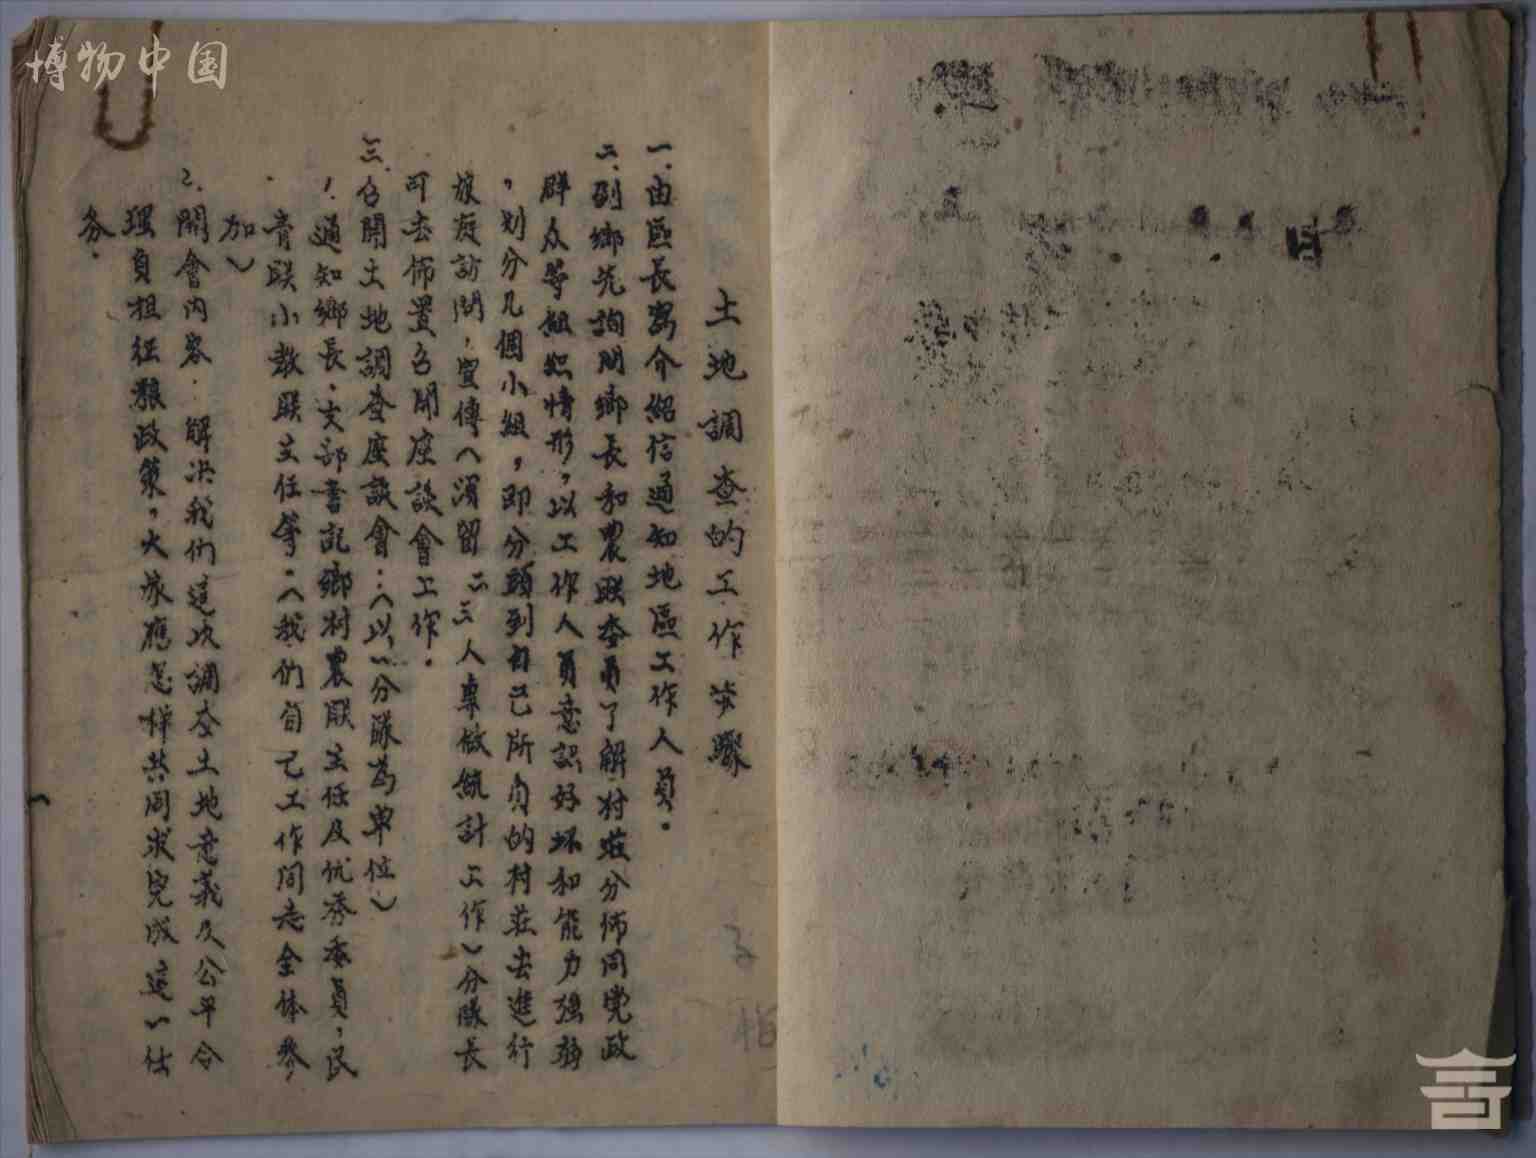 博物中国
土地調查的工作步驟
一.由區長寫介紹信通知地區工作人員.
二.到鄉先詢問鄉長和農联委員了解村莊分佈同党政
群众等組織情形,以工作人員意識好坏和能力强弱
,划分几個小組,即分頭到自己所負的村莊去進行
旅友訪問,宣傳(須留二三人專做統計工作)分隊長
可去佈置召開座談會工作.
三.召開土地調查座談會:(以一分隊為單位)
1.通知鄉長.支部書記鄉村農联主任及优秀委員,民
.青联小教联主任等:(我們自己工作同志全体參
加)
2.開會内容.解决我們這次調查土地意義及公平合
理負担征粮政策,大家應怎樣共同求完成這一任
务.